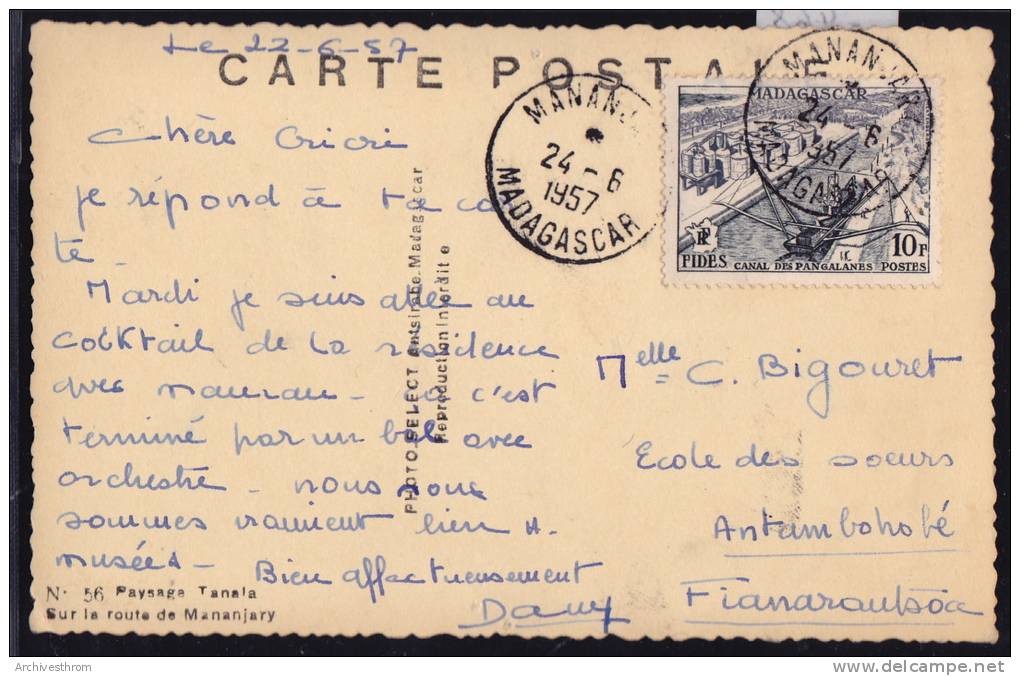 Le 22-6-57
CARTE POSTALE
MANANJ
24-6
1957
MADAGASCAR
MANANJAR
24-6
1957
MADAGASCAR
MADAGASCAR
RF
10F
FIDES CANAL DES PANGALANES POSTES
Chère Cricri
je répond à ta car
te_
Mardi je suis allée au
cocktail de la résidence
avec maman_ ça c'est
terminé par un bal avec
orchestre_ nous nous
sommes vraiment bien A.
musées_
Bien affectueusement
Dany
PHOTO SELECT Antsirabe Madagascar
Reproduction Interdite
Melle C. Bigouret
Ecole des soeurs
Antambohobé
Fianarantsoa
N° 56 Paysage Tanala
Sur la route de Mananjary
Archivesthrom
www.delcampe.net